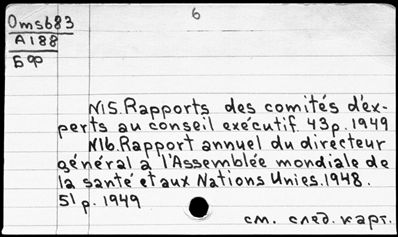 6
Oms683
A188
БФ
N15. Rapports des comités d'ex-
perts au conseil exécutif. 43 p. 1949
N16. Rapport annuel du directeur
général a l'Assemblée mondiale de
la santé et aux Nations Unies. 1948.
51 p. 1949
см. след. карт.